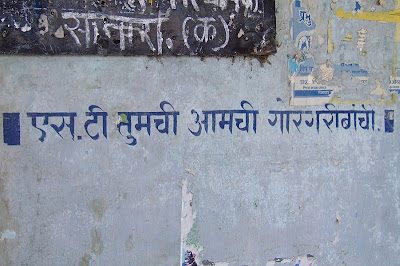 सातारा. (क)
एस.टी तुमची आमची गोरगरीबांची.